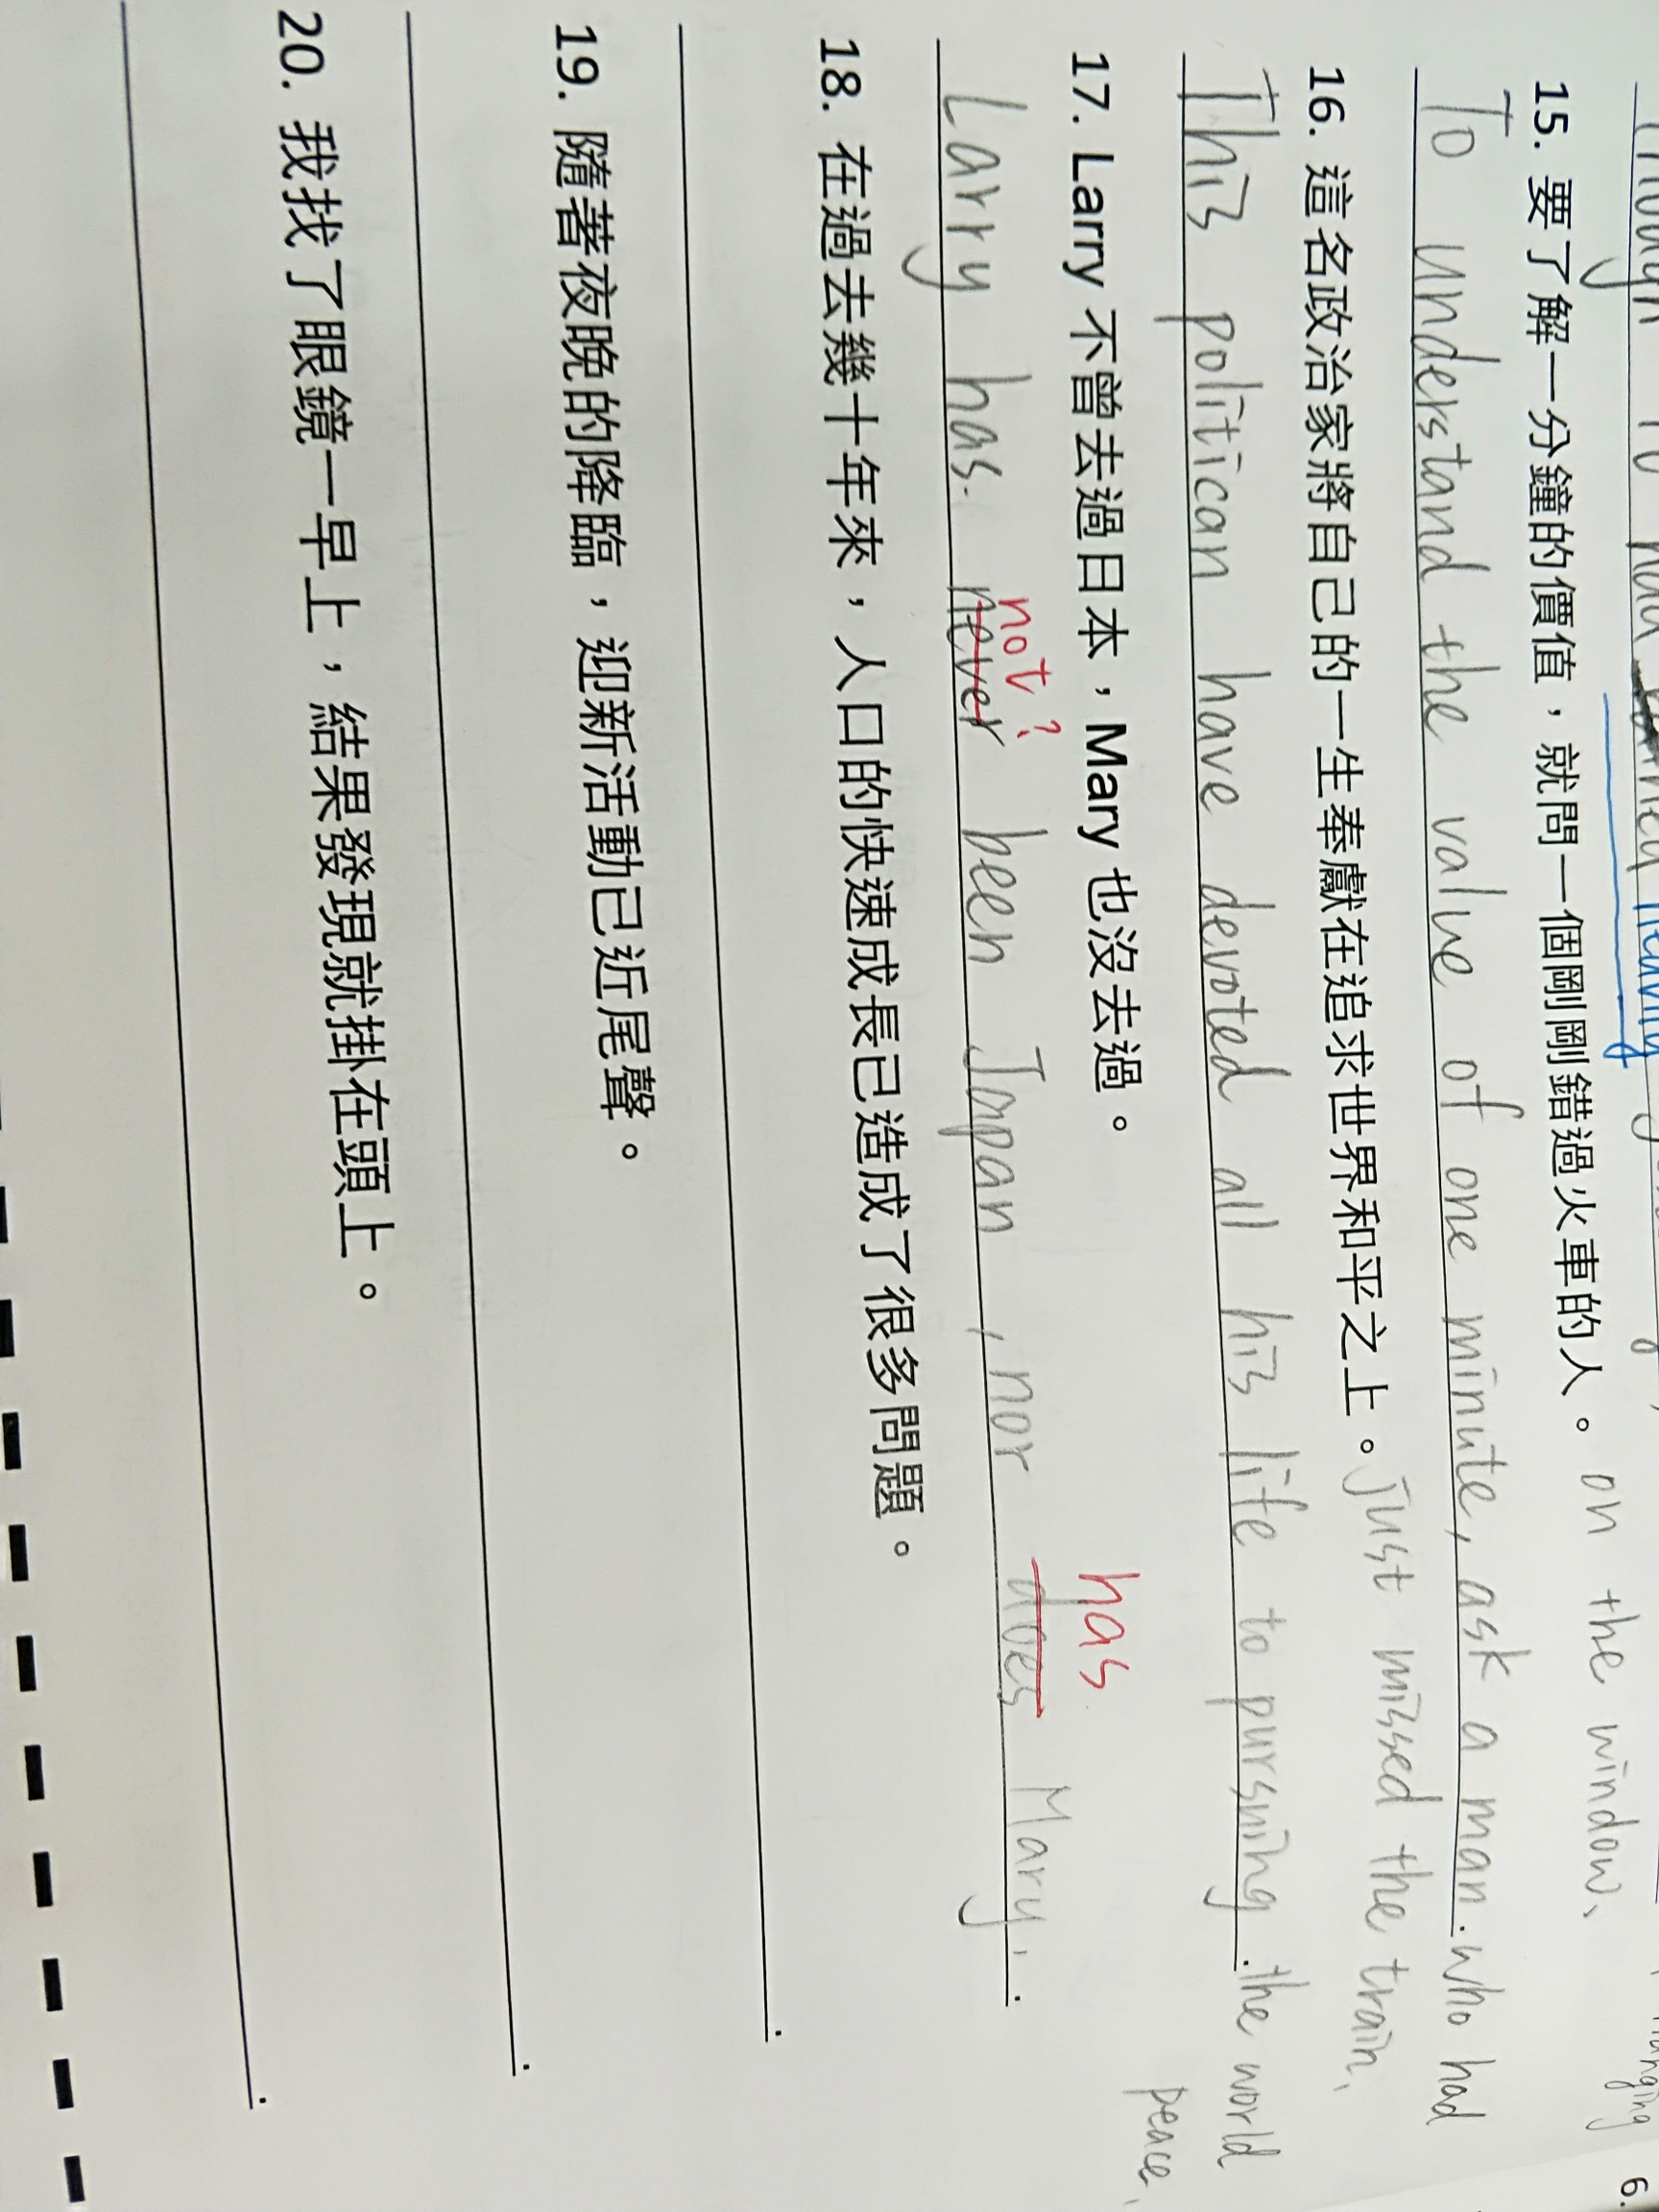 on the window、
15. 要了解一分鐘的價值，就問一個剛剛錯過火車的人。
To understand the value of one minute, ask a man. who had
just missed the train、
16. 這名政治家將自己的一生奉獻在追求世界和平之上。
This politican have devoted all his life to pursuing. the world
peace、
17. Larry 不曾去過日本，Mary 也沒去過。
not? has
Larry has. never been Japan, nor does Mary. .
18. 在過去幾十年來，人口的快速成長已造成了很多問題。
.
19. 隨著夜晚的降臨，迎新活動已近尾聲。
.
20. 我找了眼鏡一早上，結果發現就掛在頭上。
.
6.